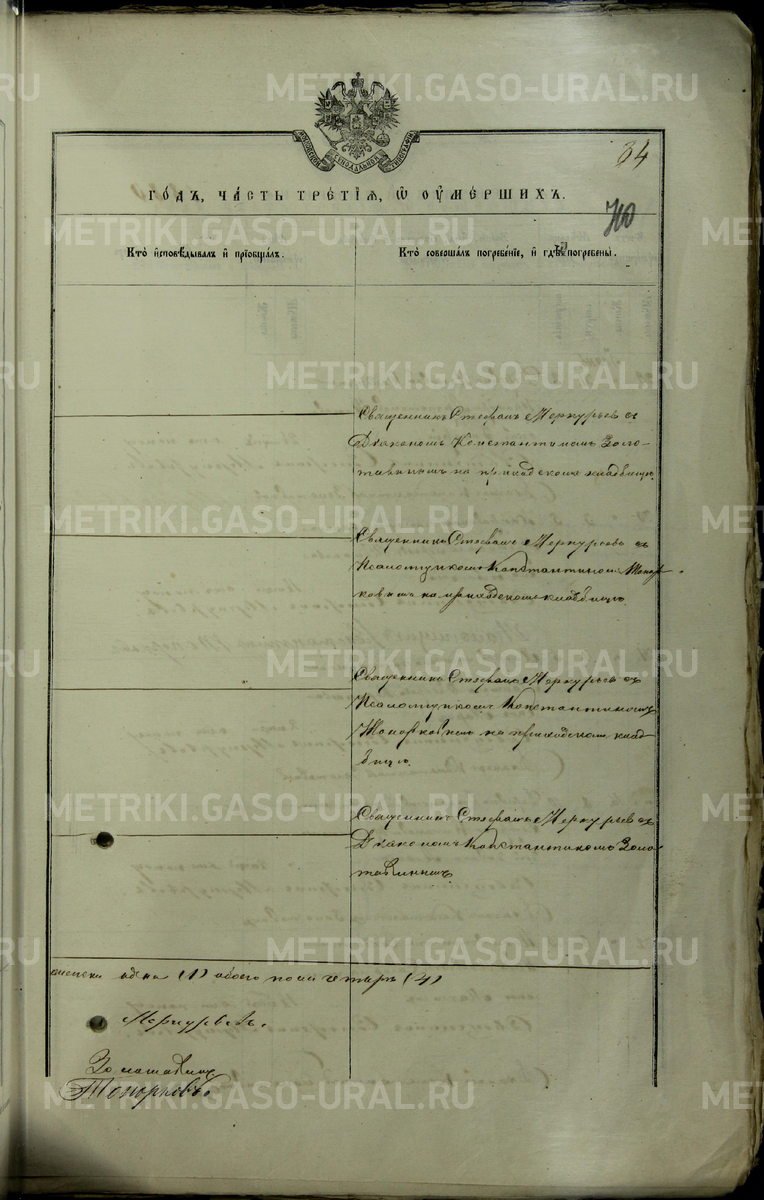 METRIKI.GASO-URAL.RU
МОСКОВСКОЙ СѴНОДАЛЬНОЙ ТИПОГРАФІИ
84
ГО́ДЪ, ЧА́СТЬ ТРЕ́ТІѦ, Ѡ҆ ОУ҆МЕ́РШИХЪ.
710
Кто̀ и҆сповѣ́дывалъ и҆ прїѡбща́лъ.
Кто̀ соверша́лъ погребе́нїе, и҆ гдѣ̀ погребены̀.
Священникъ Стефанъ Меркурьев съ
Діакономъ Константиномъ Золо-
тавинымъ на приходскомъ кладбищѣ.
Священникъ Стефанъ Меркурьевъ съ
Псаломщикомъ Константиномъ Топор-
ковымъ на приходскомъ кладбищѣ.
Священникъ Стефанъ Меркурьевъ съ
Псаломщикомъ Константиномъ
Топорковымъ на приходскомъ клад-
бищѣ.
Священникъ Стефанъ Меркурьевъ съ
Діакономъ Константиномъ Золо-
тавинымъ
одна (1) обоего пола четыре (4)
Меркурьевъ.
Золотавинъ
Топорковъ